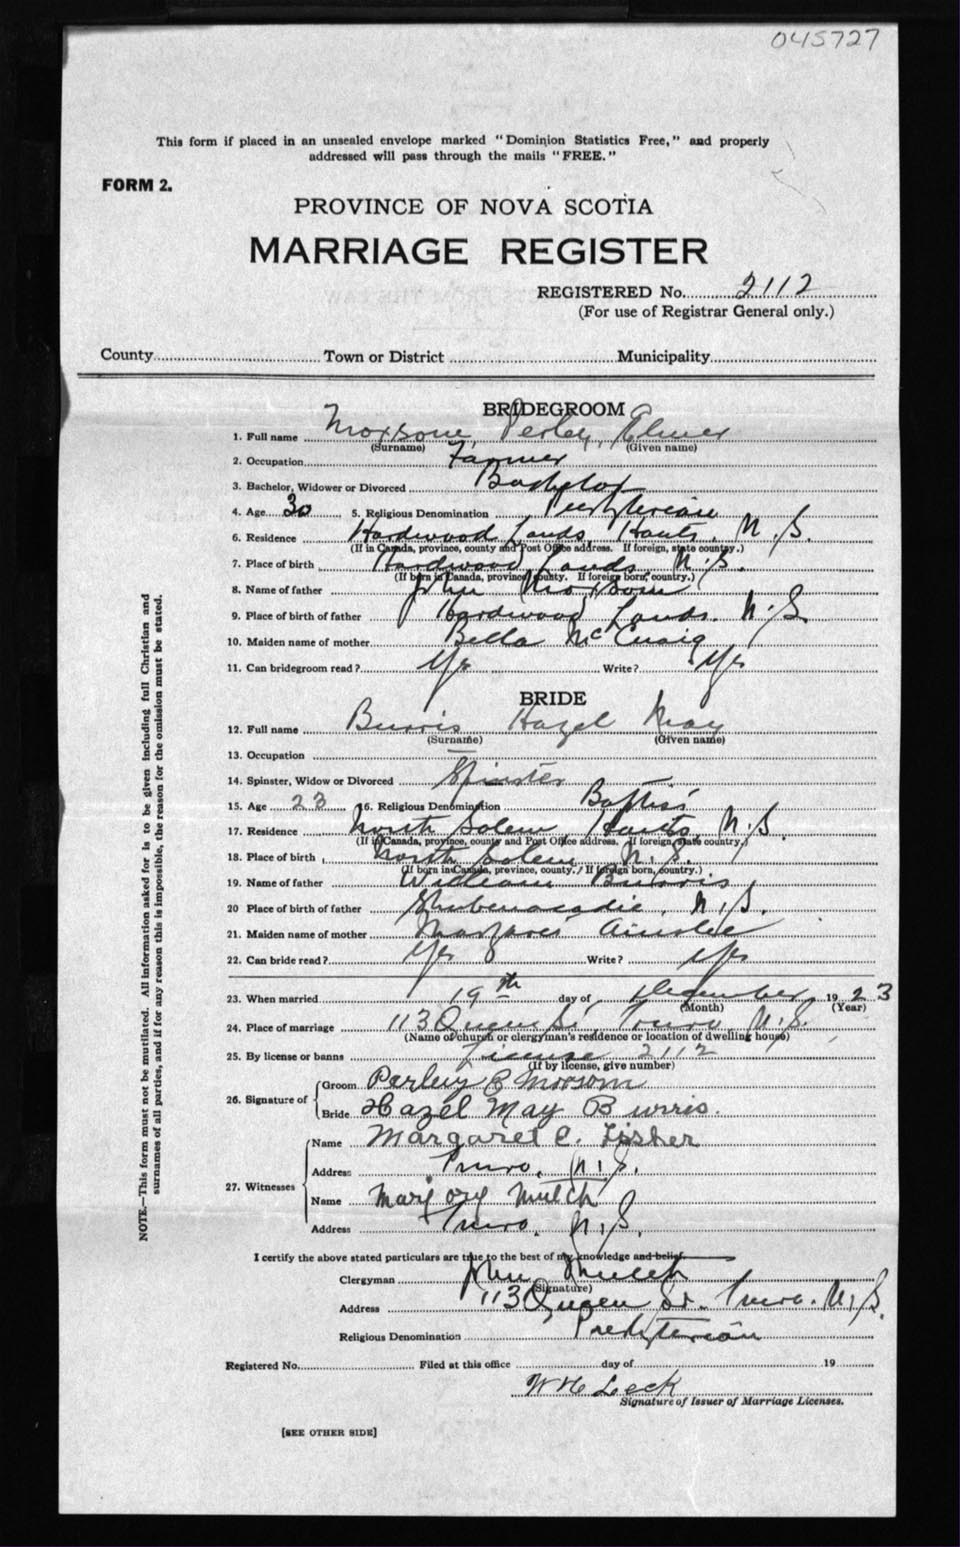 045727
This form if placed in an unsealed envelope marked "Dominion Statistics Free," and properly
addressed will pass through the mails "FREE."
FORM 2.
PROVINCE OF NOVA SCOTIA
MARRIAGE REGISTER
REGISTERED No. 2112
(For use of Registrar General only.)
County Town or District Municipality
BRIDEGROOM
1. Full name Moxsom, Perley, Elmer
(Surname) (Given name)
2. Occupation Farmer
3. Bachelor, Widower or Divorced Bachelor
4. Age 30 5. Religious Denomination Presbyterian
6. Residence Hardwood Lands, Hants, N.S.
(If in Canada, province, county and Post Office address. If foreign, state country.)
7. Place of birth Hardwood Lands. N.S.
(If born in Canada, province, county. If foreign born, country.)
8. Name of father John Moxsom
9. Place of birth of father Hardwood Lands. N.S.
10. Maiden name of mother Bella McCuaig
11. Can bridegroom read? Yes Write? Yes
BRIDE
12. Full name Burris Hazel May
(Surname) (Given name)
13. Occupation —
14. Spinster, Widow or Divorced Spinster
15. Age 23 16. Religious Denomination Baptist
17. Residence North Salem Hants, N.S.
(If in Canada, province, county and Post Office address. If foreign, state country.)
18. Place of birth North Salem N.S.
(If born in Canada, province, county. If foreign born, country.)
19. Name of father William Burris
20 Place of birth of father Shubenacadie, N.S.
21. Maiden name of mother Margaret Ainslie
22. Can bride read? Yes Write? Yes
23. When married 19th day of December 1923
(Month) (Year)
24. Place of marriage 113 Queen St. Truro, N.S.
(Name of church or clergyman's residence or location of dwelling house)
25. By license or banns License 2112
(If by license, give number)
26. Signature of Groom Perley E Moxsom
Bride Hazel May Burris.
27. Witnesses Name Margaret C. Fisher
Address Truro, N.S.
Name Marjory Mulch
Address Truro, N.S.
I certify the above stated particulars are true to the best of my knowledge and belief.
Clergyman John Mulch
(Signature)
Address 113 Queen St. Truro. N.S.
Religious Denomination Presbyterian
Registered No. Filed at this office day of 19
W H Leck
Signature of Issuer of Marriage Licenses.
[SEE OTHER SIDE]
NOTE.—This form must not be mutilated. All information asked for is to be given including full Christian and
surnames of all parties, and if for any reason this is impossible, the reason for the omission must be stated.